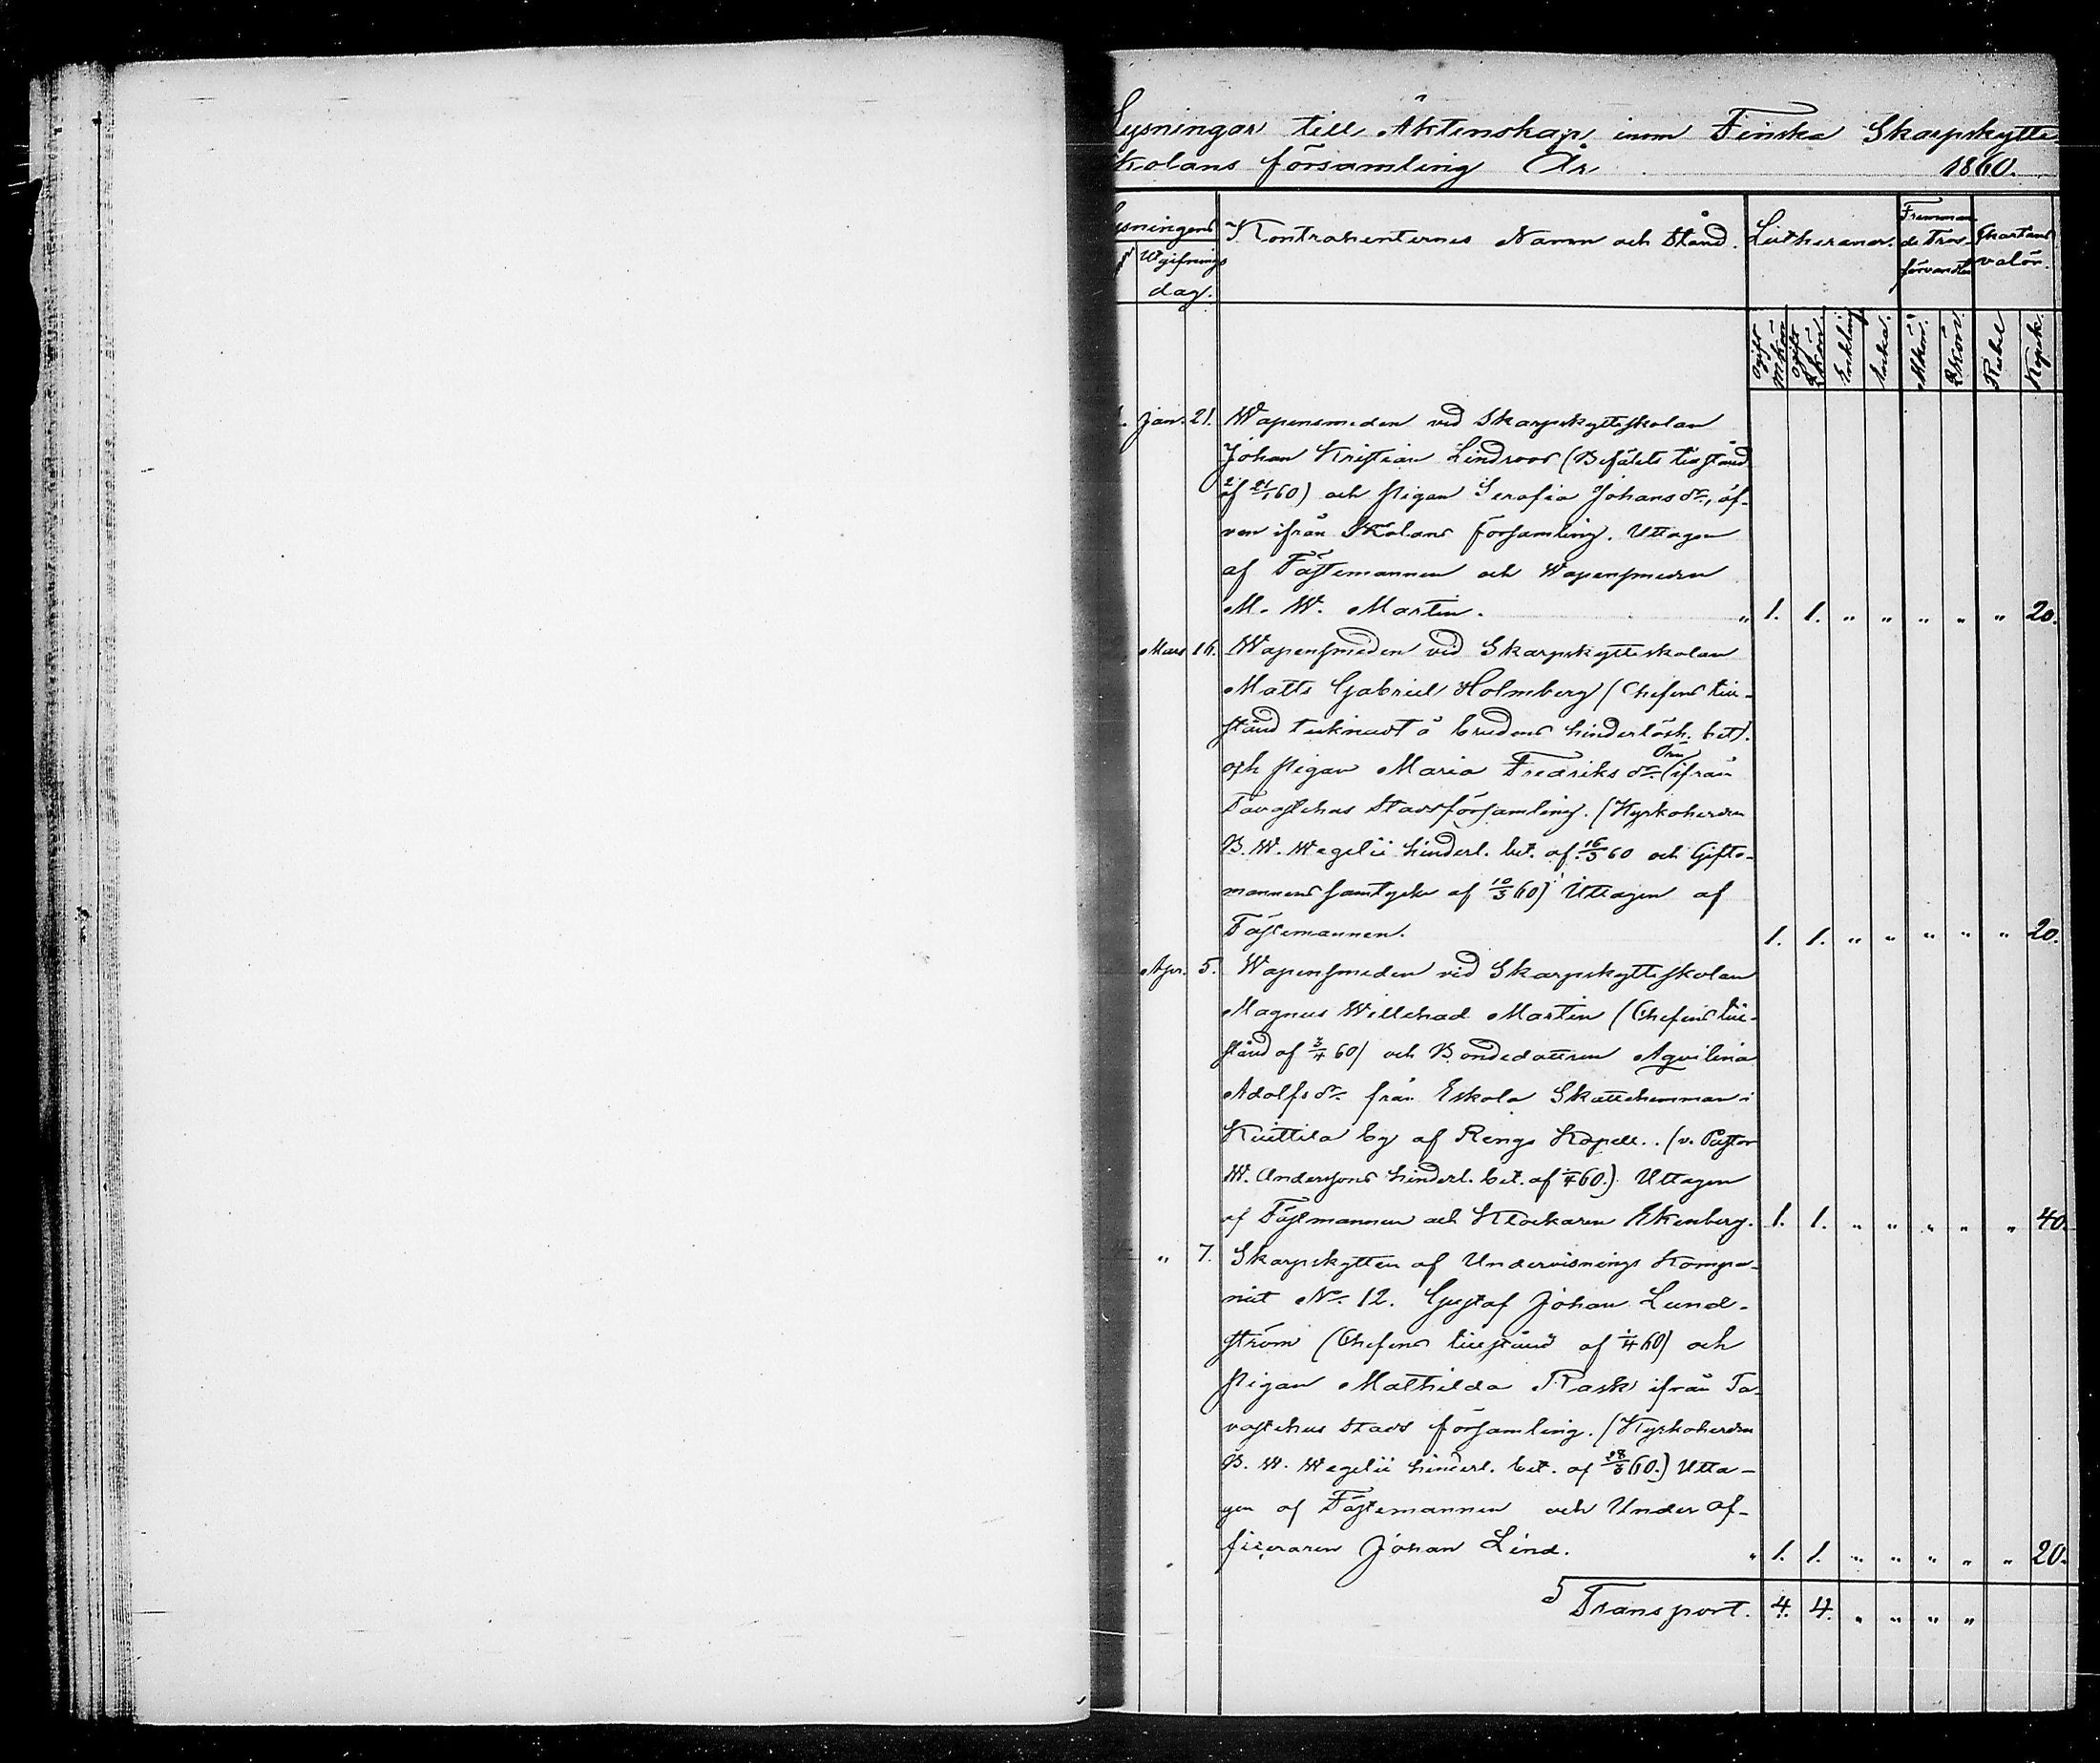 Lysningar till Äktenskap inom Finska Skarpskytte-
skolans församling År 1860.
Lysningens
Utgifnings
dag.
Kontrahenternes Namn och Stånd.
Lutheraner.
Fremman
de Tros-
förvandter
Chartans
valör.
Ogift Mkön
Ogift Qkön
Enkling
Enka.
Mkön.
Qkön.
Rubel
Kopek.
Jan. 21. Wapensmeden vid Skarpskytteskolan
Johan Kristian Lindroos (Befälets tillstånd
af 21/1 60) och Pigan Serafia Johansdr., äf-
ven ifrån Skolans församling. Uttagen
af Fästemannen och Wapensmeden
M. W. Martin. " 1. 1. " " " " " 20.
Mars 16. Wapensmeden vid Skarpskytteskolan
Matts Gabriel Holmberg (Chefens till-
stånd teknadt å brudens hinderlösh. bet).
och Pigan Maria Fredriksdr. (ifrån
Tavastehus Stadsförsamling. (Kyrkoherden
B. W. Wegelii hinderl. bet. af 16/3 60 och Gifto-
mannens samtycke af 10/3 60) Uttagen af
Fästemannen. 1. 1. " " " " " 20.
Apr. 5. Wapensmeden vid Skarpskytteskolan
Magnus Willehad Martin (Chefens till-
stånd af 3/4 60) och Bondedottren Aqvilina
Adolfsdr. från Eskola Skattehemman i
Kuittila by af Rengo Kapell. (v. Pastor
W. Anderssons hinderl. bet. af 1/4 60.) Uttagen
af Fästmannen och Klockaren Ekenberg. 1. 1. " " " " " 40.
" 7. Skarpskytten af Undervisnings Kompa-
niet No. 12. Gustaf Johan Lund-
ström (Chefens tillstånd af 1/4 60) och
Pigan Mathilda Rask ifrån Ta-
vastehus Stads församling. (Kyrkoherden
B. W. Wegelii hinderl. bet. af 28/3 60.) Utta-
gen af Fästemannen och Under of-
ficeraren Johan Lind. " 1. 1. " " " " " 20.
Transport. 4. 4. " " " "